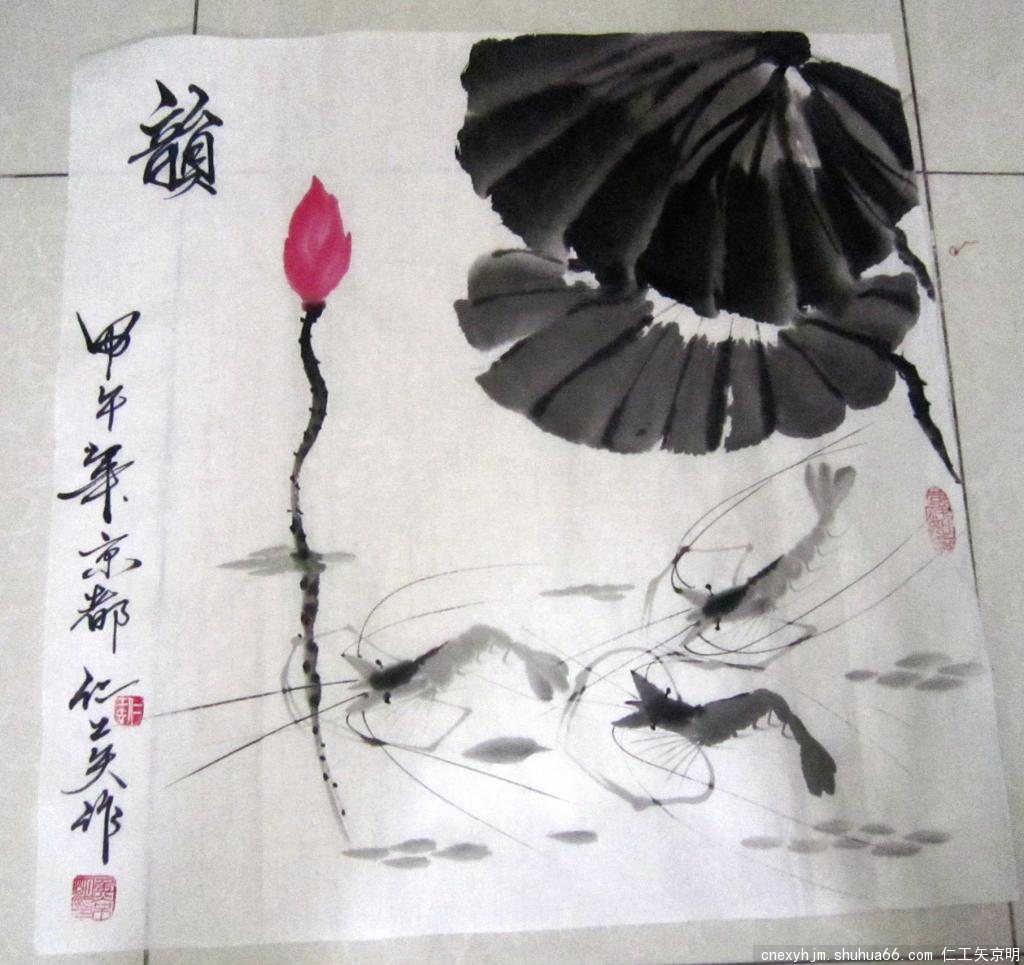 韻
甲午年京都仁工矢作
cnexyhjm.shuhua66.com 仁工矢京明